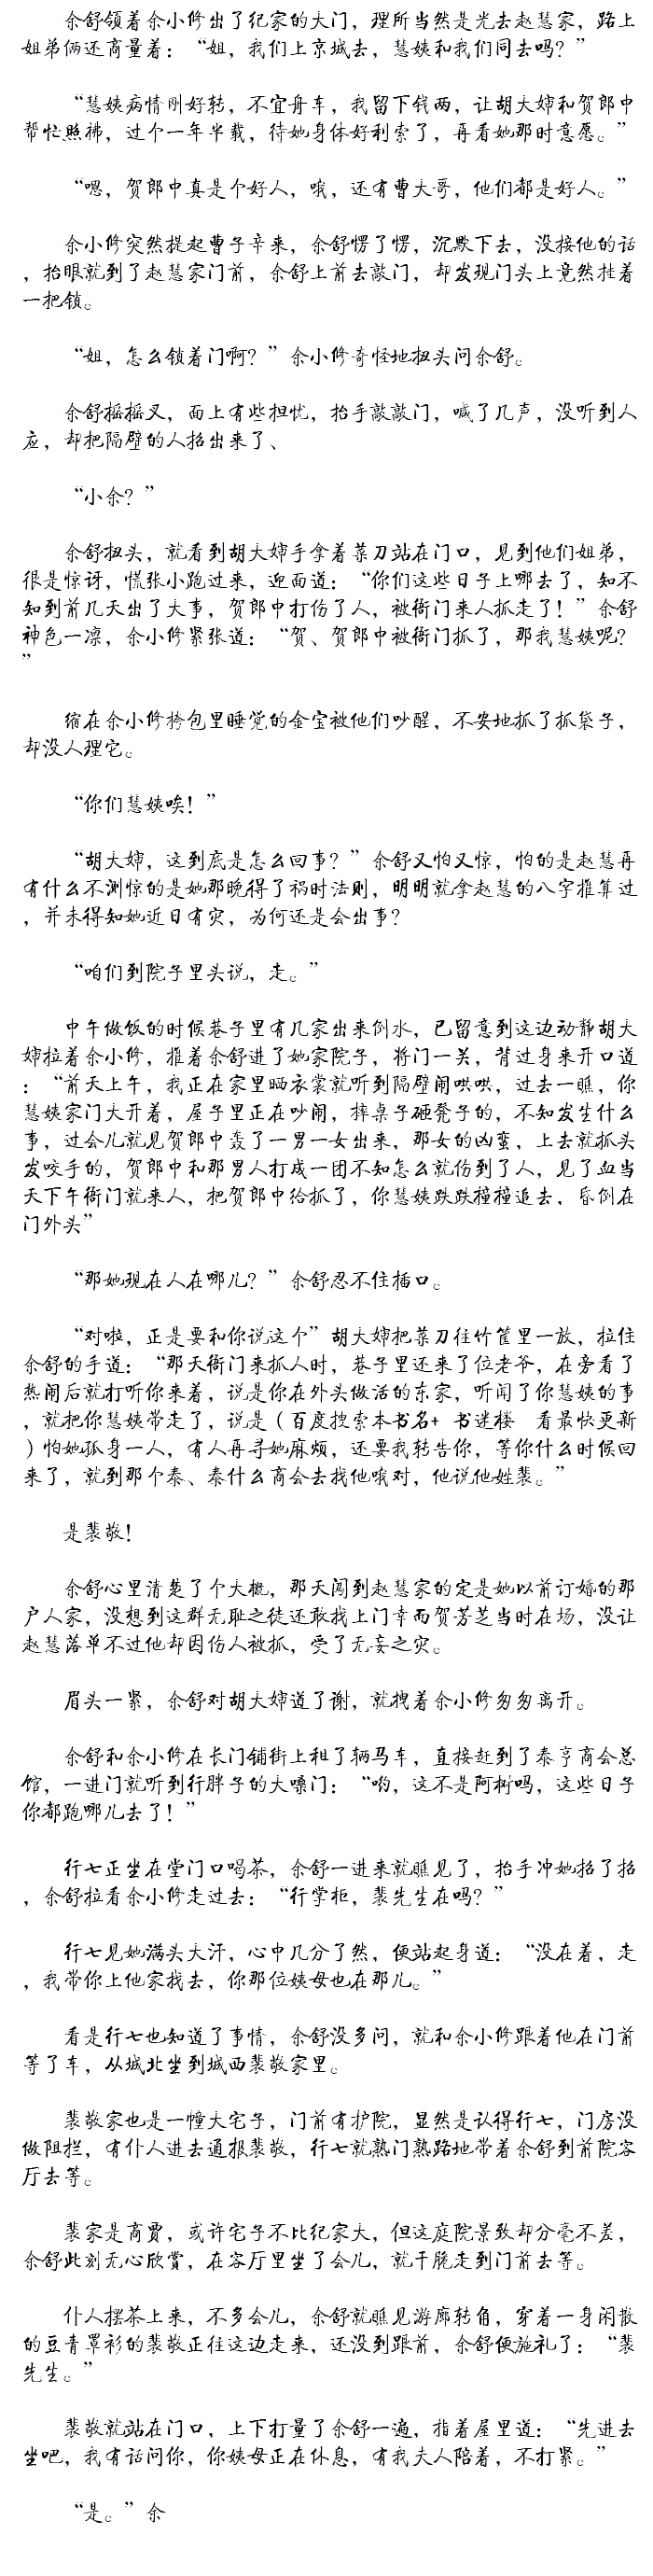 余舒领着余小修出了纪家的大门，理所当然是先去赵慧家，路上
姐弟俩还商量着：“姐，我们上京城去，慧姨和我们同去吗？”
“慧姨病情刚好转，不宜舟车，我留下钱两，让胡大婶和贺郎中
帮忙照拂，过个一年半载，待她身体好利索了，再看她那时意愿。”
“嗯，贺郎中真是个好人，哦，还有曹大哥，他们都是好人。”
余小修突然提起曹子辛来，余舒愣了愣，沉默下去，没接他的话
，抬眼就到了赵慧家门前，余舒上前去敲门，却发现门头上竟然挂着
一把锁。
“姐，怎么锁着门啊？”余小修奇怪地扭头问余舒。
余舒摇摇叉，面上有些担忧，抬手敲敲门，喊了几声，没听到人
应，却把隔壁的人招出来了、
“小余？”
余舒扭头，就看到胡大婶手拿着菜刀站在门口，见到他们姐弟，
很是惊讶，慌张小跑过来，迎面道：“你们这些日子上哪去了，知不
知到前几天出了大事，贺郎中打伤了人，被衙门来人抓走了！”余舒
神色一凛，余小修紧张道：“贺、贺郎中被衙门抓了，那我慧姨呢？
”
缩在余小修挎包里睡觉的金宝被他们吵醒，不安地抓了抓袋子，
却没人理它。
“你们慧姨唉！”
“胡大婶，这到底是怎么回事？”余舒又怕又惊，怕的是赵慧再
有什么不测惊的是她那晚得了祸时法则，明明就拿赵慧的八字推算过
，并未得知她近日有灾，为何还是会出事？
“咱们到院子里头说，走。”
中午做饭的时候巷子里有几家出来倒水，已留意到这边动静胡大
婶拉着余小修，推着余舒进了她家院子，将门一关，背过身来开口道
：“前天上午，我正在家里晒衣裳就听到隔壁闹哄哄，过去一瞧，你
慧姨家门大开着，屋子里正在吵闹，摔桌子砸凳子的，不知发生什么
事，过会儿就见贺郎中轰了一男一女出来，那女的凶蛮，上去就抓头
发咬手的，贺郎中和那男人打成一团不知怎么就伤到了人，见了血当
天下午衙门就来人，把贺郎中给抓了，你慧姨跌跌撞撞追去，昏倒在
门外头”
“那她现在人在哪儿？”余舒忍不住插口。
“对啦，正是要和你说这个”胡大婶把菜刀往竹筐里一放，拉住
余舒的手道：“那天衙门来抓人时，巷子里还来了位老爷，在旁看了
热闹后就打听你来着，说是你在外头做活的东家，听闻了你慧姨的事
，就把你慧姨带走了，说是（百度搜索本书名+ 书谜楼 看最快更新
）怕她孤身一人，有人再寻她麻烦，还要我转告你，等你什么时候回
来了，就到那个泰、泰什么商会去找他哦对，他说他姓裴。”
是裴敬！
余舒心里清楚了个大概，那天闯到赵慧家的定是她以前订婚的那
户人家，没想到这群无耻之徒还敢找上门幸而贺芳芝当时在场，没让
赵慧落单不过他却因伤人被抓，受了无妄之灾。
眉头一紧，余舒对胡大婶道了谢，就拽着余小修匆匆离开。
余舒和余小修在长门铺街上租了辆马车，直接赶到了泰亨商会总
馆，一进门就听到行胖子的大嗓门：“哟，这不是阿树吗，这些日子
你都跑哪儿去了！”
行七正坐在堂门口喝茶，余舒一进来就瞧见了，抬手冲她招了招
，余舒拉看余小修走过去：“行掌柜，裴先生在吗？”
行七见她满头大汗，心中几分了然，便站起身道：“没在着，走
，我带你上他家找去，你那位姨母也在那儿。”
看是行七也知道了事情，余舒没多问，就和余小修跟着他在门前
等了车，从城北坐到城西裴敬家里。
裴敬家也是一幢大宅子，门前有护院，显然是认得行七，门房没
做阻拦，有仆人进去通报裴敬，行七就熟门熟路地带着余舒到前院客
厅去等。
裴家是商贾，或许宅子不比纪家大，但这庭院景致却分毫不差，
余舒此刻无心欣赏，在客厅里坐了会儿，就干脆走到门前去等。
仆人摆茶上来，不多会儿，余舒就瞧见游廊转角，穿着一身闲散
的豆青罩衫的裴敬正往这边走来，还没到跟前，余舒便施礼了：“裴
先生。”
裴敬就站在门口，上下打量了余舒一遍，指着屋里道：“先进去
坐吧，我有话问你，你姨母正在休息，有我夫人陪着，不打紧。”
“是。”余